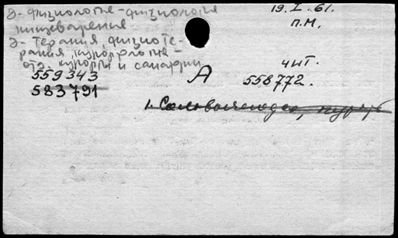 Э- физиология-физиология
пищеварения.
Э- терапия, физиоте-
рапия, курортология-
отд. курорты и санатории
559343
583791
19.I.61.
П.М.
А
чит.
558772.